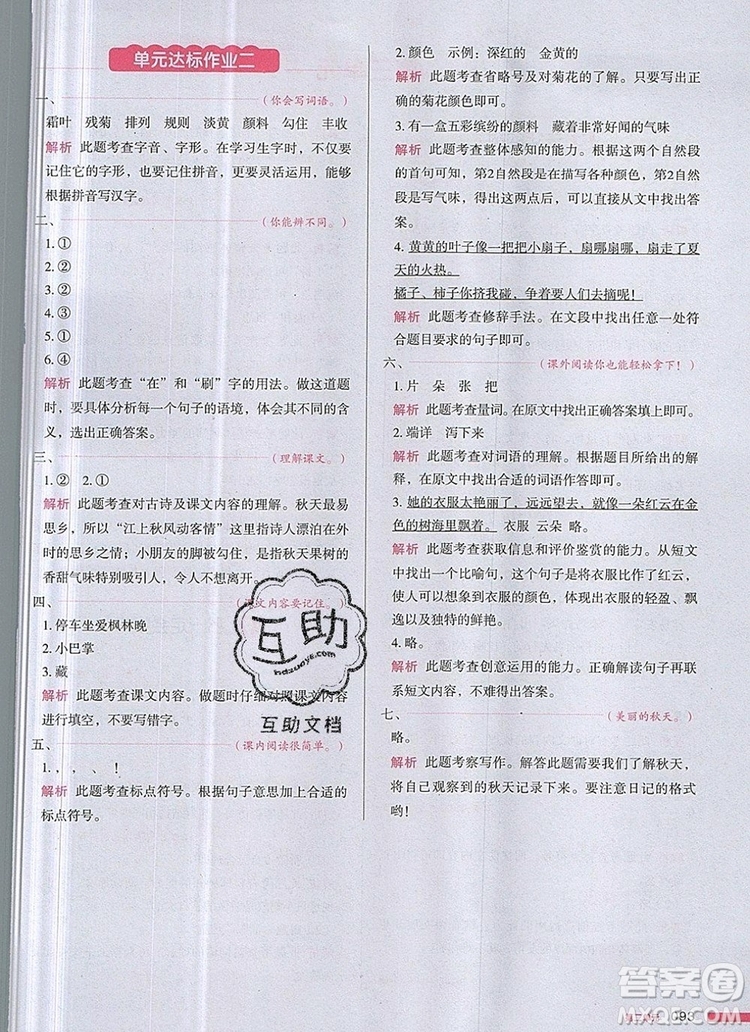 单元达标作业二
一、（你会写词语。）
霜叶 残菊 排列 规则 淡黄 颜料 勾住 丰收
解析 此题考查字音、字形。在学习生字时，不仅要
记住它的字形，也要记住拼音，更要灵活运用，能
根据拼音写汉字。
二、（你能辨不同。）
1. ①
2. ②
3. ②
4. ③
5. ①
6. ④
解析 此题考查“在”和“刷”字的用法。在做这道题
时，要具体分析每一个句子的语境，体会其不同的含
义，选出正确答案。
三、（理解课文。）
1. ② 2. ①
解析 此题考查对古诗及课文内容的理解。秋天最易
思乡，所以“江上秋风动客情”这句诗写诗人漂泊在外
时的思乡之情；小朋友的脚被勾住，是秋天果树的
香甜气味特别吸引人，令人不想离开。
四、（课文内容要记住。）
1. 停车坐爱枫林晚
2. 小巴掌
3. 藏
解析 此题考查课文内容。做题时仔细对照课文内容
进行填空，不要写错字。
五、（课内阅读很简单。）
1. ， ， 、 ！
解析 此题考查标点符号。根据句子意思加上合适的
标点符号。
2. 颜色 示例：深红的 金黄的
解析 此题考查省略号及对菊花的了解。只要写出对
的菊花颜色即可。
3. 有一盒五彩缤纷的颜料 藏着非常好闻的气味
解析 此题考查整体感知的能力。根据这两个自然段
的首句可知，第2自然段是在描写各种颜色，第3自然
段是写气味，得出这两点后，可以直接从文中找出答
案。
4. 黄黄的叶子像一把把小扇子，扇哪扇哪，扇走了夏
天的火热。
橘子、柿子你挤我碰，争着要人们去摘呢！
解析 此题考查修辞手法。在文段中找出任意一处符合
题目要求的句子即可。
六、（课外阅读你也能轻松拿下！）
1. 片 朵 张 把
解析 此题考查量词。在原文中找出正确答案填上即可。
2. 端详 泻下来
解析 此题考查对词语的理解。根据题目所给出的解
释，在原文中找出合适的词语作答即可。
3. 她的衣服太艳丽了，远远望去，就像一朵红云在金
色的树海里飘着。 衣服 云朵 略。
解析 此题考查获取信息和评价鉴赏的能力。从短文
中找出一处比喻句，这个句子是将衣服比作了红云，
使人可以想象到衣服的形状和颜色，写出衣服的轻盈、飘
逸以及独特的鲜艳。
4. 略。
解析 此题考查创意运用的能力。正确解读句子再联系
短文内容，不难得出答案。
七、（美丽的秋天。）
略。
解析 此题考察写作。解答此题需要我们了解秋天，
将自己观察到的秋天记录下来。要注意日记的格式
哟！
互助
hdzuoye.com
互助文档
答案圈
MXQE.COM
093